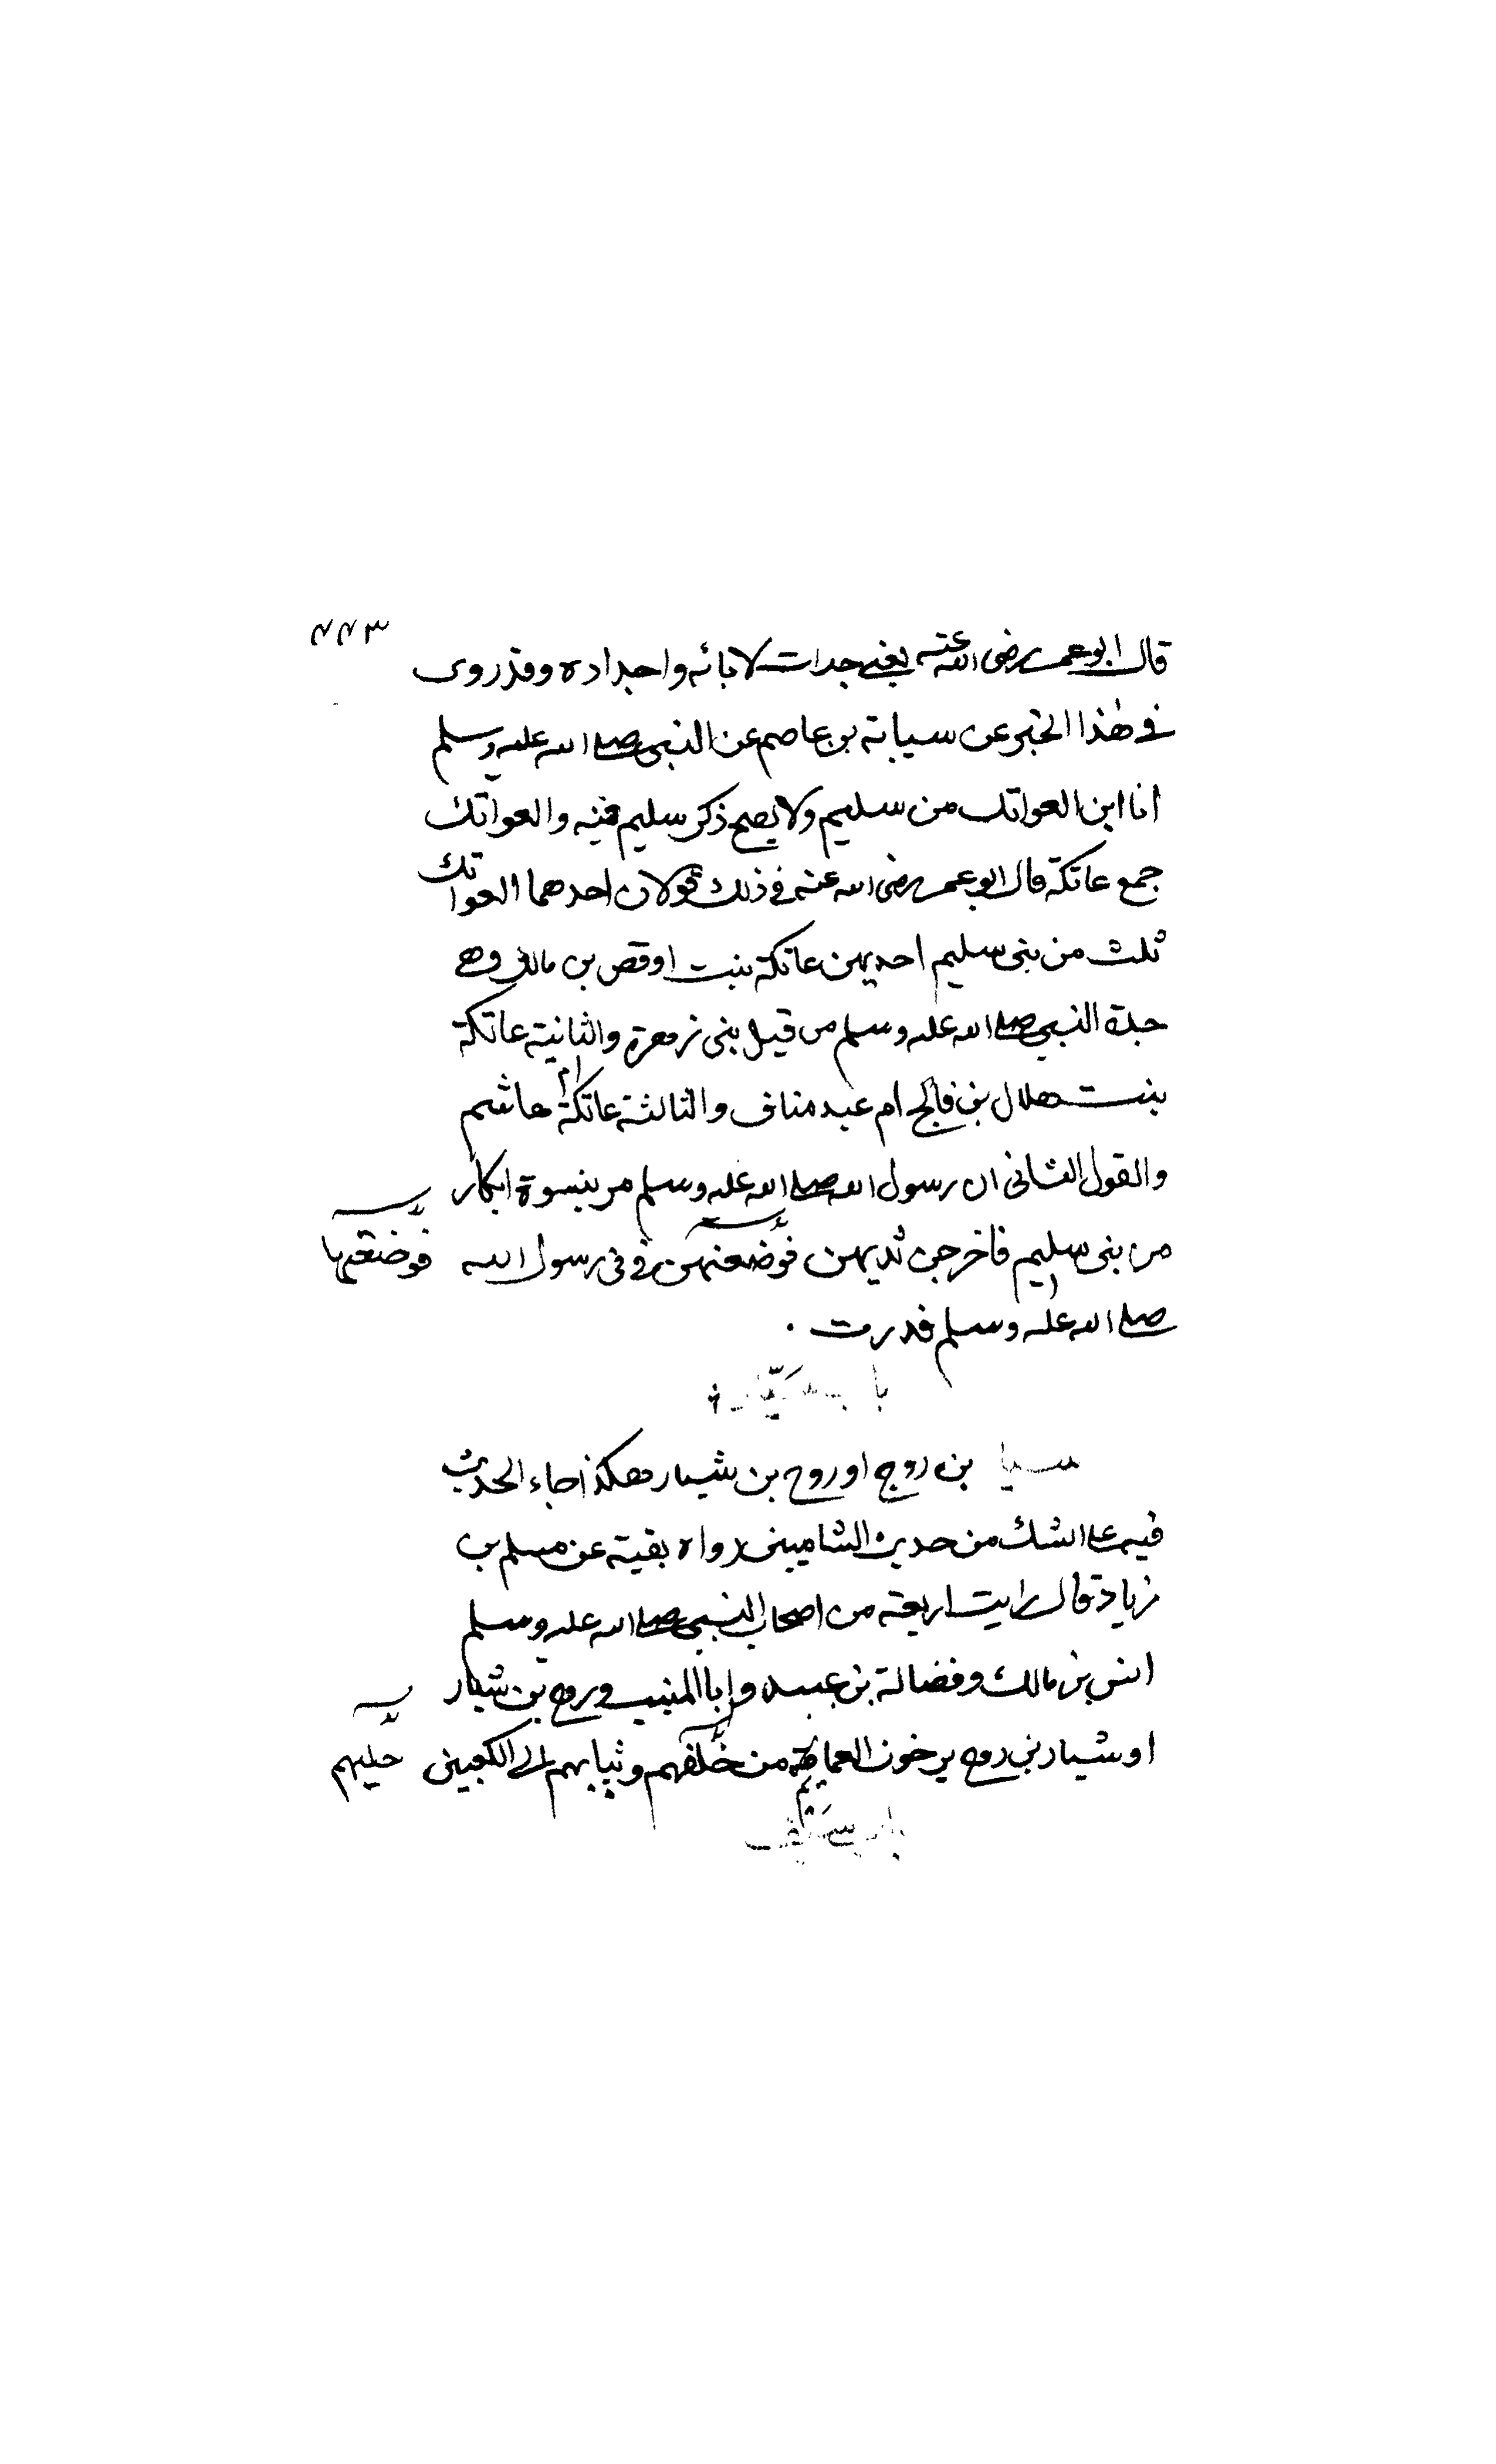 ٤٤٣
قال ابو عمر رضى الله عنه يعنى جدات لابائه واجداده وقد روى
فى هذا الخبر عن سيابة بن عاصم عن النبى صلى الله عليه وسلم
انا ابن العواتك من سليم ولا يصح ذكر سليم فيه والعواتك
جمع عاتكة قال ابو عمر رضى الله عنه فى ذلك قولان احدهما العواتك
ثلث من بنى سليم احديهن عاتكة بنت اوقص بن مالك وهى
جدة النبى صلى الله عليه وسلم من قبل بنى زهرة والثانية عاتكة
بنت هلال بن فالج ام عبد مناف والثالثة عاتكة ام هاشم
والقول الثانى ان رسول الله صلى الله عليه وسلم مر بنسوة ابكار
من بنى سليم فاخرجن ثديهن فوضعنهن فى فى رسول الله فوضعها
صلى الله عليه وسلم فدرت .
باب
بن روح او روح بن شيبار هكذا جاء الحديث
فيه على الشك من حديث الشاميين رواه بقية عن مسلم بن
زياد قال رايت اربعة من اصحاب النبى صلى الله عليه وسلم
انس بن مالك وفضالة بن عبيد وابا المنيب وروح بن شيار
او شيار بن روح يرخون العمائم من خلفهم وثيابهم الى الكعبين
باب